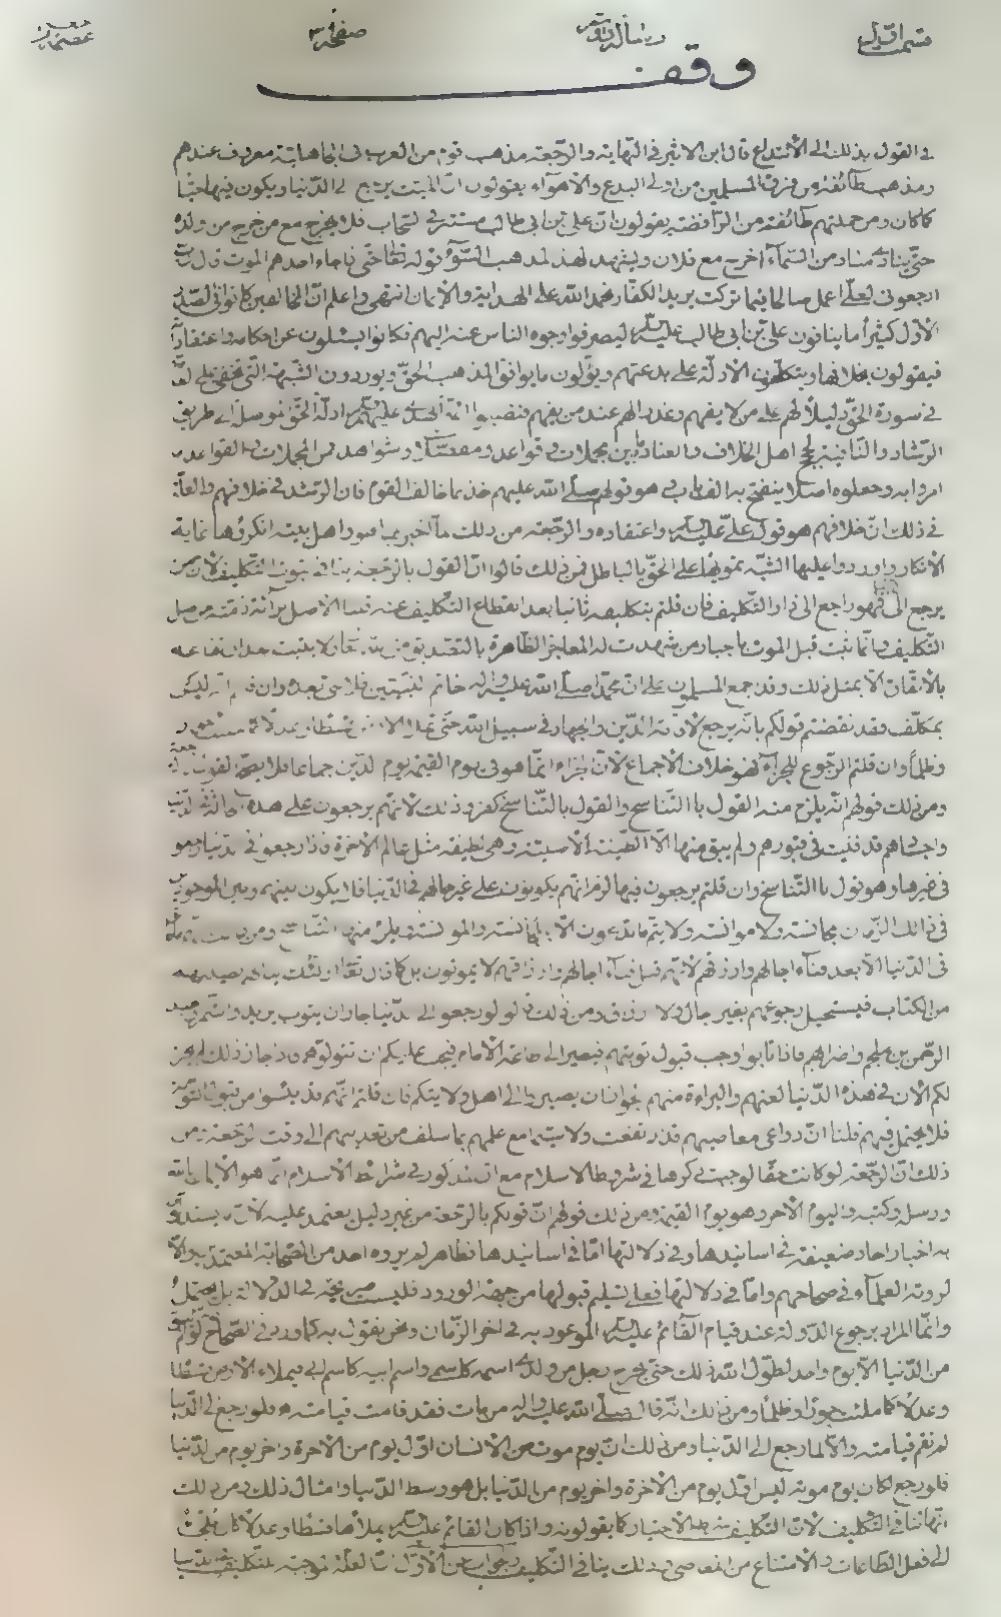 قسمت اول رسالهٔ صفحه
وقف
في القول بذلك الى الابتداع قال ابن الاثير في النهاية والرجعة مذهب قوم من العرب في الجاهلية معروف عندهم
ومذهب طائفة من فرق المسلمين من اولى البدع والاهواء يقولون ان الميت يرجع الى الدنيا ويكون فيها حيا
كما كان ومن جملتهم طائفة من الرافضة يقولون ان علي بن ابي طالب مستتر في السحاب فلا يخرج مع من خرج من ولده
حتى ينادي مناد من السماء اخرج مع فلان ويشهد لهذا المذهب السوء قوله تعالى حتى اذا جاء احدهم الموت قال رب
ارجعوني لعلي اعمل صالحا فيما تركت يريد الكفار نحمد الله على الهداية والايمان انتهى واعلم ان المخالفين كانوا في الصدر
الاول كثيرا ما ينافون علي بن ابي طالب عليه السلام ليصرفوا وجوه الناس عنه اليهم فكانوا يسئلون عن احكامه واعتقاداته
فيقولون بخلافها ويتكلفون الادلة على بدعتهم ويؤلون ما يوافق المذهب الحق ويوردون الشبهة التي تخفى على
في صورة الحق دليلا لهم على من لا يفهم وعذرا لهم عند من يفهم فنصبوا ائمة الهدى عليهم السلام ادلة الحق الموصلة الى طريق
الرشاد والنافية لحجج اهل الخلاف والعناد بين مجملات في قواعد ومفصلات وشواهد فمن المجملات في القواعد
امروا به وجعلوه اصلا ينفتح به الف باب هو قولهم صلى الله عليهم خذ بما خالف القوم فان الرشد في خلافهم والعلة
في ذلك ان خلافهم هو قول علي عليه السلام واعتقاده والرجعة من ذلك ما اخبر بها هو واهل بيته انكروها غاية
الانكار واوردوا عليها الشبه تمويها على الحق بالباطل فمن ذلك قالوا ان القول بالرجعة ينافي ثبوت التكليف لان من
يرجع الى فهو راجع الى دار التكليف فان قلتم بتكليفه ثانيا بعد انقطاع التكليف عنه قلنا الاصل برائة ذمته من
التكليف وانما ثبت قبل الموت باخبار من شهدت له المعاجز الظاهرة بالتصديق من الله تعالى ولا يثبت بعد انقطاعه
بالاتفاق الا بمثل ذلك وقد اجمع المسلمون على ان محمدا صلى الله عليه واله خاتم النبيين فلا نبي بعده وان قلتم انه ليس
بمكلف فقد نقضتم قولكم بانه يرجع لاقامة الدين والجهاد في سبيل الله حتى تملأ الارض قسطا وعدلا كما ملئت جورا
وظلما وان قلتم الرجوع للجزاء فهو خلاف الاجماع لان الجزاء انما هو في يوم القيمة يوم الدين جماعا فلا يصح القول بالرجعة
ومن ذلك قولهم انه يلزم منه القول بالتناسخ والقول بالتناسخ كفر وذلك لانهم يرجعون على هذه الحالة الى الدنيا
واجسامهم قد فنيت في قبورهم ولم يبق منها الا الطينة الاصلية وهي لطيفة مثل عالم الاخرة فاذا رجعوا في الدنيا وهو
في غيرها وهو قول بالتناسخ وان قلتم يرجعون فيها لزم انهم يكونون على غير حالهم في الدنيا فلا يكون بينهم وبين الموجودين
في ذلك الزمان مجانسة ولا موانسة ولا يتم ما تدعون الا بالمجانسة والموانسة ويلزم منها التناسخ ومن
في الدنيا الا بعد فناء اجالهم وارزاقهم لانهم قبل فناء اجالهم وارزاقهم لا يموتون بل كما قال تعالى اولئك ينالهم نصيبهم
من الكتاب فيستحيل رجوعهم بغير اجال ولا رزق ومن ذلك قولهم لو رجعوا الى الدنيا جاز ان يتوب يزيد والشمر وعبد
الرحمن بن ملجم واضرابهم فاذا تابوا وجب قبول توبتهم فيصير الى طاعة الامام فيجب عليكم ان تتولوهم واذا جاز ذلك لم يجز
لكم الان في هذه الدنيا لعنهم والبراءة منهم لجواز ان يصيروا الى اهل ولايتكم فان قلتم انهم قد يئسوا من قبول التوبة
فلا يحتمل فيهم قلنا ان دواعي معاصيهم قد ارتفعت ولا سيما مع علمهم بما سلف من تعذيبهم الى وقت الرجعة ومن
ذلك ان الرجعة لو كانت حقا لوجب ذكرها في شروط الاسلام مع ان المذكور في شرائط الاسلام انما هو الايمان بالله
ورسله وكتبه واليوم الاخر وهو يوم القيمة ومن ذلك قولهم ان قولكم بالرجعة من غير دليل يعتمد عليه لان ما يستدلون
به اخبار احاد ضعيفة في اسانيدها وفي دلالتها اما في اسانيدها فظاهر لم يروه احد من الصحابة المعتمدين والا
لروته العلماء في صحاحهم واما في دلالتها فعلى تسليم قبولها من جهة الورود فليست صريحة في الدلالة بل يحتمل
وانما المراد برجوع الدولة عند قيام القائم عليه السلام الموعود به في اخر الزمان ونحن نقول به كما ورد في الصحاح لو لم يبق
من الدنيا الا يوم واحد لطول الله ذلك حتى يخرج رجل من ولدي اسمه كاسمي واسم ابيه كاسم ابي يملاء الارض قسطا
وعدلا كما ملئت جورا وظلما ومن ذلك انه قال صلى الله عليه واله من مات فقد قامت قيامته فلو رجع الى الدنيا
لم تقم قيامته والا لما رجع الى الدنيا ومن ذلك ان يوم موت الانسان اول يوم من الاخرة واخر يوم من الدنيا
فلو رجع لكان يوم موته ليس اول يوم من الاخرة واخر يوم من الدنيا بل هو وسط الدنيا وامثال ذلك ومن ذلك
انها تنافي التكليف لان التكليف شرطه الاختيار كما يقولونه واذا كان القائم عليه السلام يملأها قسطا وعدلا كان يلجئ
الى فعل الطاعات والامتناع من المعاصي وذلك ينافي التكليف والجواب عن الاول ان العلة الموجبة للتكليف في الدنيا